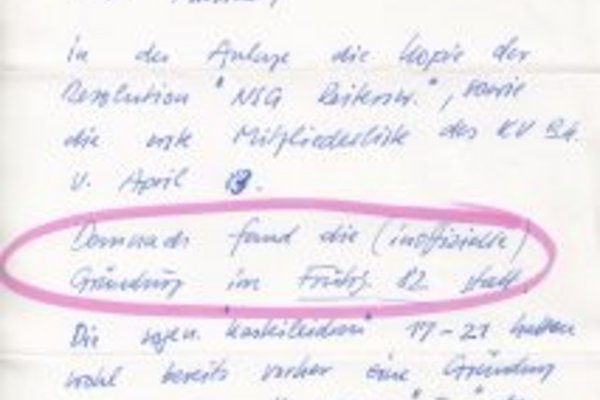 In der Anlage die Kopie der
Resolution "NSG Reiterswi.", sowie
die erste Mitgliederliste des KV
v. April
Demnach fand die (inoffizielle)
Gründung im Frühj. 82 statt.
Die sogen. 17-21 hatten
wohl bereits vorher eine Gründung